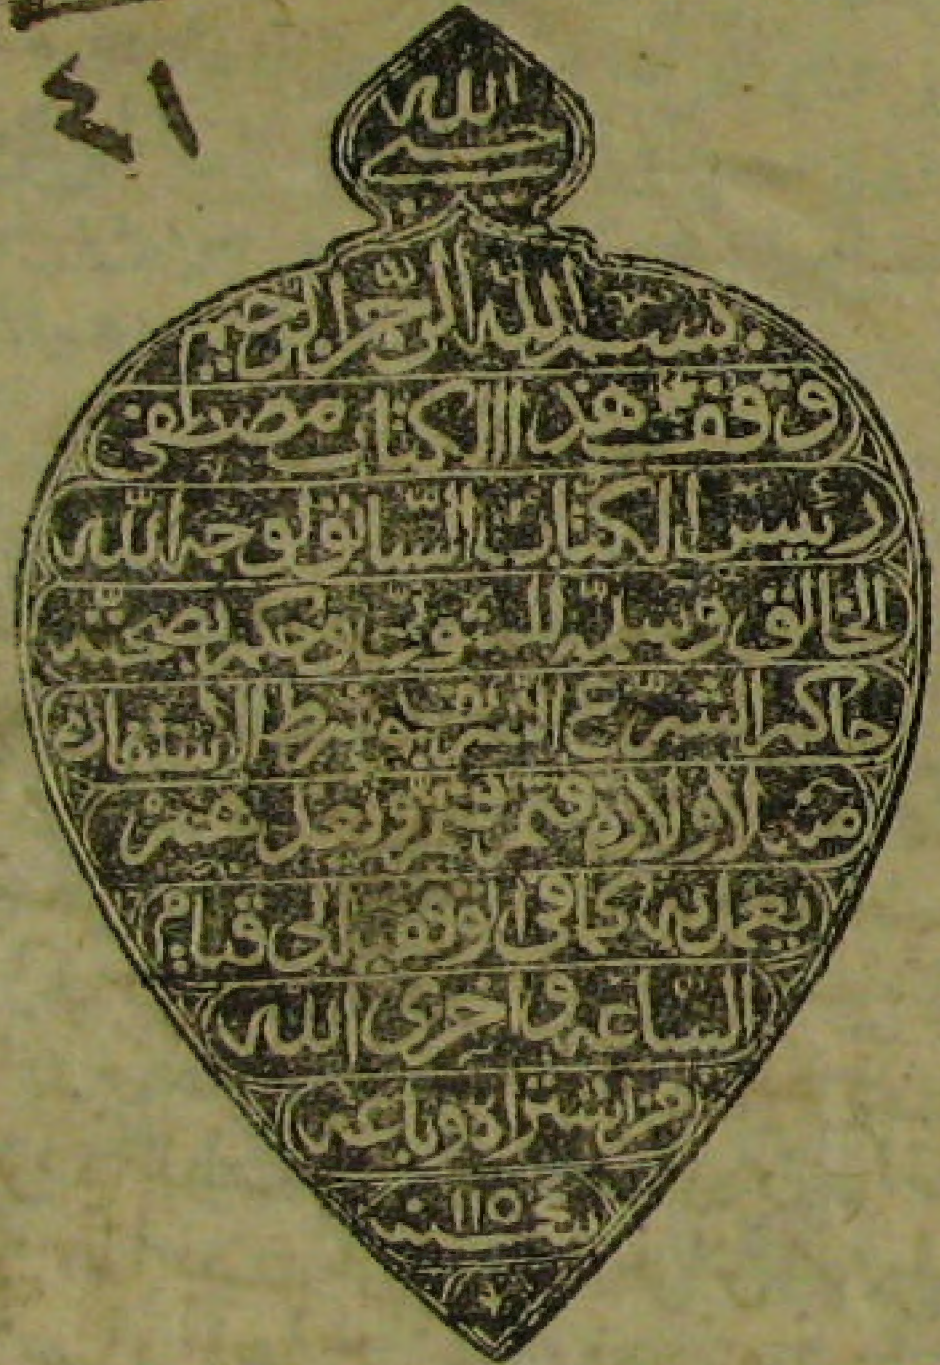 ٤١
الله
حسبي
بسم الله الرحمن الرحيم
وقف هذا الكتاب مصطفى
رئيس الكتاب السابق لوجه الله
الخالق وسلمه للمتولي وحكم بصحته
حاكم الشرع الشريف وشرط الاستفادة
منه لاولاده وبعدهم
يعمل به كما في الوقفية الى قيام
الساعة واخزى الله
من اشتراه وباعه
سنة ١١٥